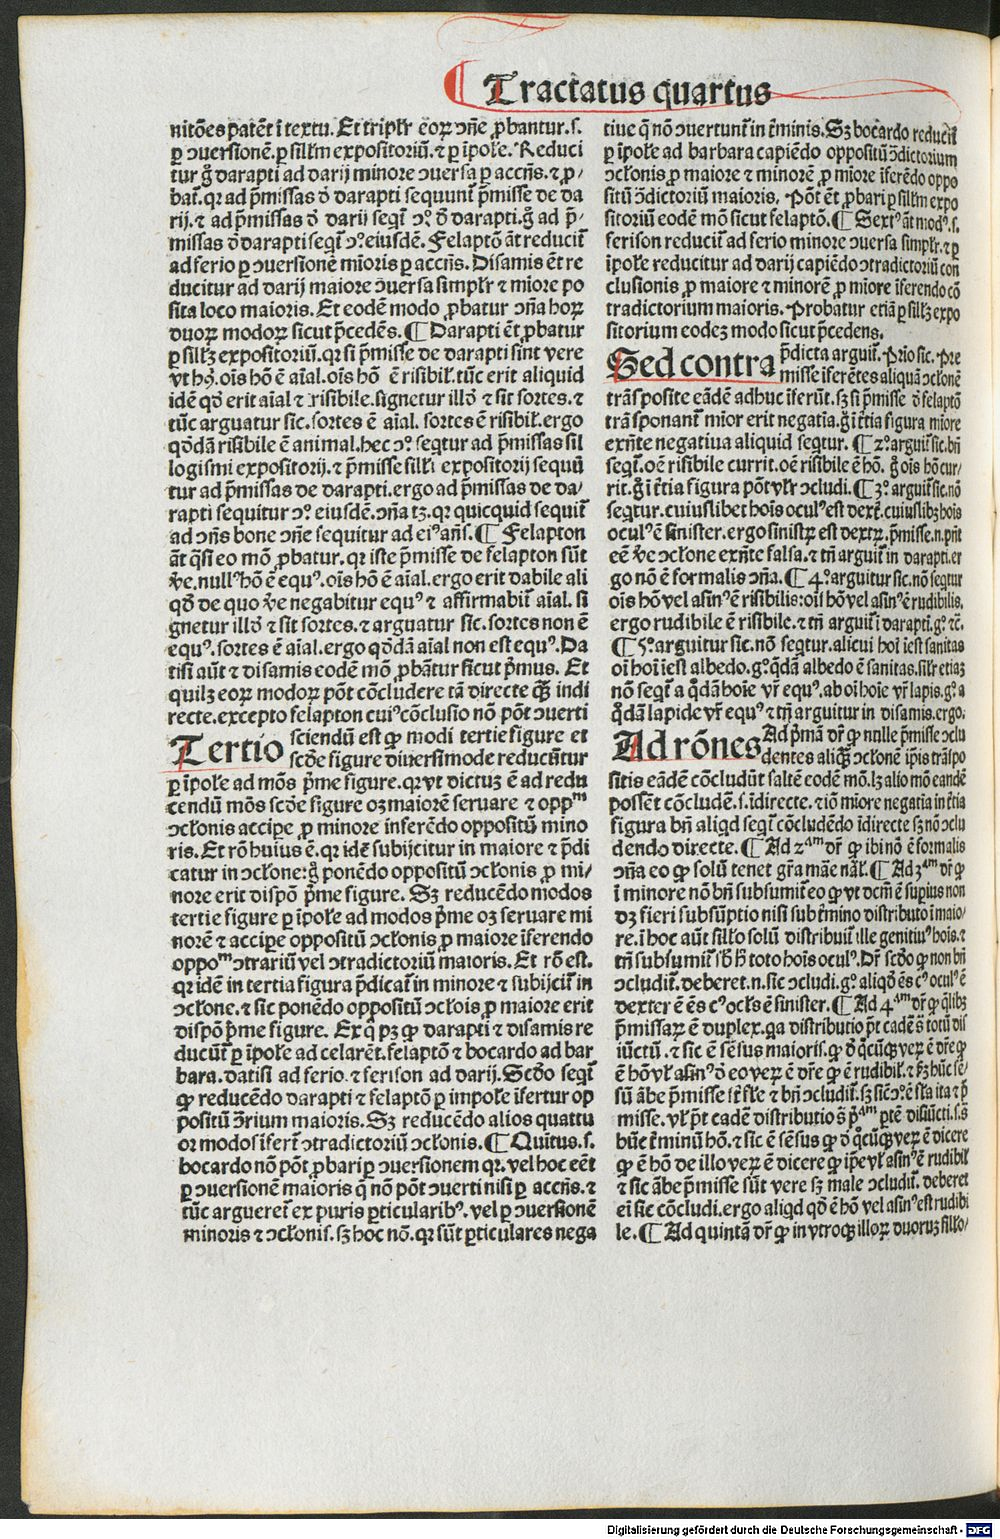 Tractatus quartus
nitões patēt ĩ textu. Et triplr̄ eoꝝ ɔñe ꝓbantur. s.
ꝑ ɔuersionē. ꝑ sillm̄ expositoriū. ⁊ ꝑ ĩpole. Reduci
tur g̊ darapti ad darij minore ɔuersa ꝑ accñs. ⁊ ꝓ-
bat̃. qꝛ ad p̄missas ð darapti sequunt̃ p̄misse de da
rij. ⁊ ad p̄missas ð darij seqit̃ ɔº. ð darapti. g̊ ad p̄-
missas ð darapti seqit̃ ɔº. eiusdē. Felaptō āt reducit̃
ad ferio ꝑ ɔuersionē mīoris ꝑ accñs. Disamis ēt re
ducitur ad darij maiore ɔuersa simplr̄ ⁊ miore po
sita loco maioris. Et eodē modo ꝓbatur ɔña hoꝝ
duoꝝ modoꝝ sicut p̄cedēs. ¶ Darapti ēt ꝓbatur
ꝑ sillꝫ expositoriū. qꝛ si p̄misse de darapti sint vere
vt hꝰ. oĩs hō ē aĩal. oĩs hō ē risibil̃. tūc erit aliquid
idē qð erit aĩal ⁊ risibile. signetur illð ⁊ sit sortes. ⁊
tūc arguatur sic. sortes ē aĩal. sortes ē risibil̃. ergo
qðdā risibile ē animal. hec ɔº. seqtur ad p̄missas sil
logismi expositorij. ⁊ p̄misse silli expositorij sequū
tur ad p̄missas de darapti. ergo ad p̄missas de da-
rapti sequitur ɔº. eiusdē. ɔña tꝫ. qꝛ quicquid sequit̃
ad ɔñs bone ɔñe sequitur ad eiꝰ añs. ¶ Felapton
āt q̄si eo mō ꝓbatur. qꝛ iste p̄misse de felapton sūt
v̄e. nullꝰ hō ē equꝰ. oĩs hō ē aĩal. ergo erit dabile ali
qð de quo v̄e negabitur equꝰ ⁊ affirmabit̃ aĩal. si
gnetur illð ⁊ sit sortes. ⁊ arguatur sic. sortes non ē
equꝰ. sortes ē aĩal. ergo qðdā aĩal non est equꝰ. Da
tisi aūt ⁊ disamis eodē mō ꝓbātur sicut p̄mus. Et
quilꝫ eoꝝ modoꝝ pōt cōcludere tā directe qȝ̄ indi
recte. excepto felapton cuiꝰ cōclusio nō pōt ɔuerti
Tertio sciendū est ꝙ modi tertie figure et
scðe figure diuersimode reducūtur
ꝑ ĩpole ad mōs p̄me figure. qꝛ vt dictuꝫ ē ad redu
cendū mōs scðe figure oꝫ maiorē seruare ⁊ oppᵐ
ɔclonis accipe ꝓ minore inferēdo oppositū mino
ris. Et rō huius ē. qꝛ idē subijcitur in maiore ⁊ p̄di
catur in ɔclone: g̊ ponēdo oppositū ɔclonis ꝓ mi-
nore erit dispō p̄me figure. Sꝫ reducēdo modos
tertie figure ꝑ ĩpole ad modos p̄me oꝫ seruare mi
norē ⁊ accipe oppositū ɔclonis ꝓ maiore ĩferendo
oppoᵐ ɔtrariū vel ɔtradictoriū maioris. Et rō est.
qꝛ idē in tertia figura p̄dicat̃ in minore ⁊ subijcit̃ in
ɔclone. ⁊ sic ponēdo oppositū ɔclois ꝓ maiore erit
dispō p̄me figure. Ex q̊ pꝫ ꝙ darapti ⁊ disamis re
ducūt̃ ꝑ ĩpole ad celarēt. felaptō ⁊ bocardo ad bar
bara. datisi ad ferio. ⁊ ferison ad darij. Scðo seqit̃
ꝙ reducēdo darapti ⁊ felaptō ꝑ impole ĩfertur op
positū ɔ̄rium maioris. Sꝫ reducēdo alios quattu
or modos ĩfert̃ ɔtradictoriū ɔclonis. ¶ Quĩtus. s.
bocardo nō pōt ꝓbari ꝑ ɔuersionem qꝛ. vel hoc eēt
ꝑ ɔuersionē maioris q̄ nō pōt ɔuerti nisi ꝑ accñs. ⁊
tūc argueret̃ ex puris ꝑticularibꝰ. vel ꝑ ɔuersionē
minoris ⁊ ɔclonis. sꝫ hoc nō. qꝛ sūt ꝑticulares nega
tiue q̄ nō ɔuertunt̃ in t̃minis. Sꝫ bocardo reducit̃
ꝑ ĩpole ad barbara capiēdo oppositū ɔ̄dictorium
ɔclonis ꝓ maiore ⁊ minorē ꝓ miore ĩferēdo oppo
sitū ɔ̄dictoriū maioris. Pōt ēt ꝓbari ꝑ sillm̄ expo
sitoriū eodē mō sicut felaptō. ¶ Sextꝰ āt modꝰ. s.
ferison reducit̃ ad ferio minore ɔuersa simplr̄. ⁊ ꝑ
ĩpole reducitur ad darij capiēdo ɔtradictoriū con
clusionis ꝓ maiore ⁊ minorē ꝓ miore ĩferendo cō
tradictorium maioris. Probatur etiā ꝑ sillꝫ expo
sitorium eodeꝫ modo sicut p̄cedens.
Sed contra p̄dicta arguit̃. Prio sic. Pre
misse ĩferētes aliquā ɔclonē
trāsposite eādē adhuc ĩferūt. sꝫ si p̄misse ð felaptō
trāsponant̃ mior erit negatĩa. g̊ ĩ t̃tia figura miore
exñte negatiua aliquid seqtur. ¶ 2º. arguit̃ sic. bñ
seqit̃. oē risibile currit. oē risibile ē hō. g̊ oĩs hō cur-
rit. g̊ ĩ t̃tia figura pōt vlr̄ ɔcludi. ¶ 3º. arguit̃ sic. nō
seqtur. cuiuslibet hoĩs oculꝰ est dext̃. cuiuslibꝫ hoĩs
oculꝰ ē sinister. ergo sinistꝝ est dextꝝ. p̄misse. n. pñt
eē v̄e ɔclone exñte falsa. ⁊ tñ arguit̃ in darapti. er
go nō ē formalis ɔña. ¶ 4º. arguitur sic. nō seqtur
oĩs hō vel asinꝰ ē risibilis: oĩs hō vel asinꝰ ē rudibilis.
ergo rudibile ē risibile. ⁊ tñ arguit̃ ĩ darapti. gº. ⁊c̄.
¶ 5º. arguitur sic. nō seqtur. alicui hoĩ ĩest sanitas
oĩ hoĩ ĩest albedo. gº. q̄dā albedo ē sanitas. silr̄ etiaꝫ
nō seqit̃ a q̊dā hoĩe vr̄ equꝰ. ab oĩ hoĩe vr̄ lapis. gº. a
q̊dā lapide vr̄ equꝰ ⁊ tñ arguitur in disamis. ergo.
Ad rōnes Ad p̄mā dr̄ ꝙ nulle p̄misse ɔclu
dentes aliqȝ̄ ɔclonē ip̄is trāspo
sitis eādē cōcludūt saltē codē mō. lꝫ alio mō eandē
possēt cōcludē. s. ĩdirecte. ⁊ iō miore negatia in t̃tia
figura bñ aliqd seqit̃ cōcludēdo ĩdirecte sꝫ nō ɔclu
dendo directe. ¶ Ad 2ᵃᵐ dr̄ ꝙ ibi nō ē formalis
ɔña eo ꝙ solū tenet gr̄a māe nāl̃. ¶ Ad 3ᵃᵐ dr̄ ꝙ
ĩ minore nō bñ subsumit̃ eo ꝙ vt dcm̄ ē supius non
dꝫ fieri subsūptio nisi sub t̃mino distributo ĩ maio-
re. ĩ hoc aūt sillo solū distribuit̃ ille genitiuꝰ hoĩs. ⁊
tñ subsumit̃ sb̄ h̄ toto hoĩs oculꝰ. Dr̄ scðo ꝙ non bñ
ɔcludit̃. deberet. n. sic ɔcludi. gº. aliqð ēs cꝰ oculꝰ ē
dexter ē ēs cꝰ oclꝰs ē sinister. ¶ Ad 4ᵃᵐ dr̄ ꝙ q̄libꝫ
p̄missaꝝ ē duplex. qa distributio p̄t cadē s̄ totū dis
iūctū. ⁊ sic ē sēsus maioris. ꝙ ð q̊cūqꝫ veꝝ ē dr̄e ꝙ
ē hō vl̃ asinꝰ ð eo veꝝ ē dr̄e ꝙ ē rudibil̃. ⁊ hꝫ hūc sē-
sū ābe p̄misse st̃ fl̃e ⁊ bñ ɔcludit̃. sꝫ sic ɔº. ē fl̃a ita ⁊ p̄
misse. vl̃ p̄t cadē distributio s̄ pᵃᵐ ꝑtē disiūcti. s. s̄
būc t̃minū hō. ⁊ sic ē sēsus ꝙ ð q̊cūqꝫ veꝝ ē dicere
ꝙ ē hō de illo veꝝ ē dicere ꝙ ip̄e vl̃ asinꝰ ē rudibil̃
⁊ sic ābe p̄misse sūt vere sꝫ male ɔcludit̃. deberet
ei sic cōcludi. ergo aliqd qð ē hō vel asinꝰ est rudibi
le. ¶ Ad quintā dr̄ ꝙ in vtroqꝫ illoꝝ duoruꝫ sillo-
Digitalisierung gefördert durch die Deutsche Forschungsgemeinschaft - DFG